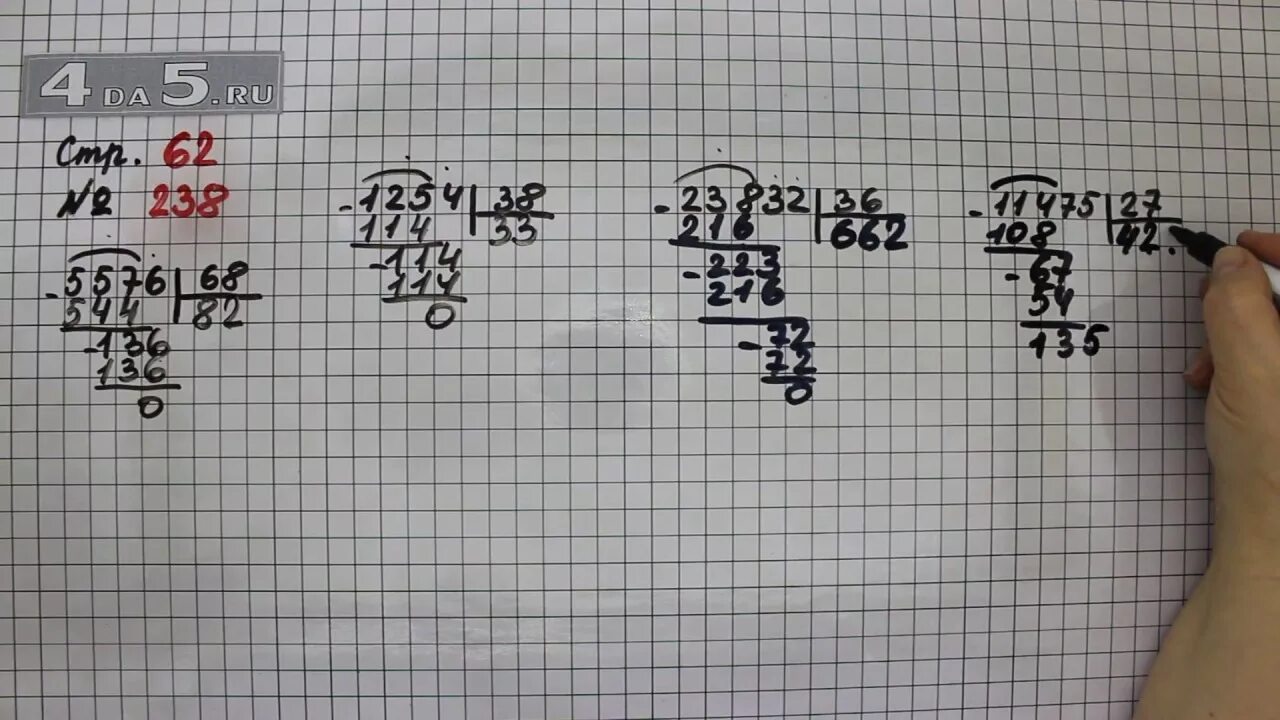 4DA5.RU
Стр. 62
№ 238
5576 | 68
544 | 82
-136
136
0
-1254 | 38
114 | 33
-114
114
0
-23832 | 36
216 | 662
-223
216
-72
72
0
-11475 | 27
108 | 42.
-67
54
135